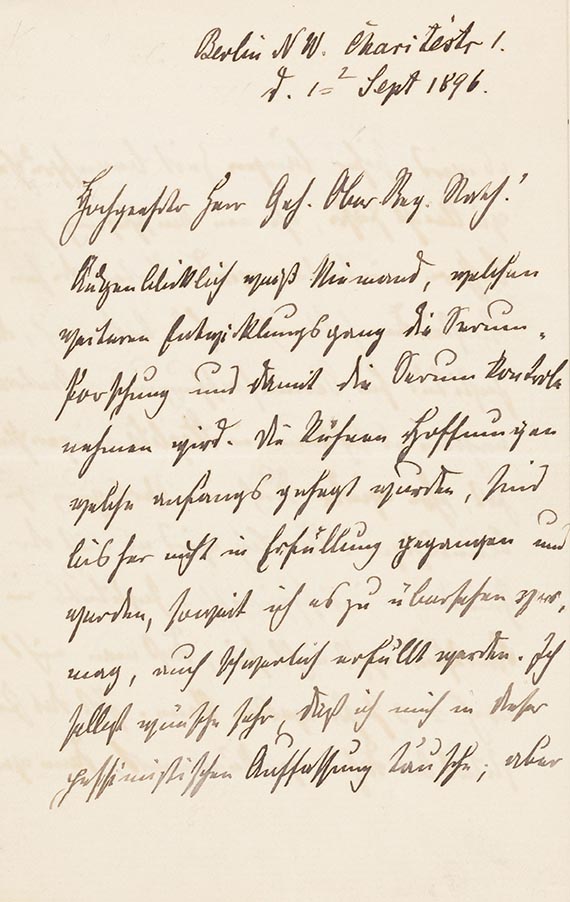 Berlin NW. Charitéstr 1.
d. 1=2 Sept 1896.
Hochgeehrter Herr Geh. Ober Reg. Rath!
Augenblicklich weiß Niemand, welchen
weiteren Entwicklungsgang die Serum-
forschung und damit die Serumkontrole
nehmen wird. Die kühnen Hoffnungen
welche anfangs gehegt wurden, sind
bisher nicht in Erfüllung gegangen und
werden, soweit ich es zu übersehen ver-
mag, auch schwerlich erfüllt werden. Ich
selbst wünsche sehr, daß ich mich in dieser
pessimistischen Auffassung täusche; aber